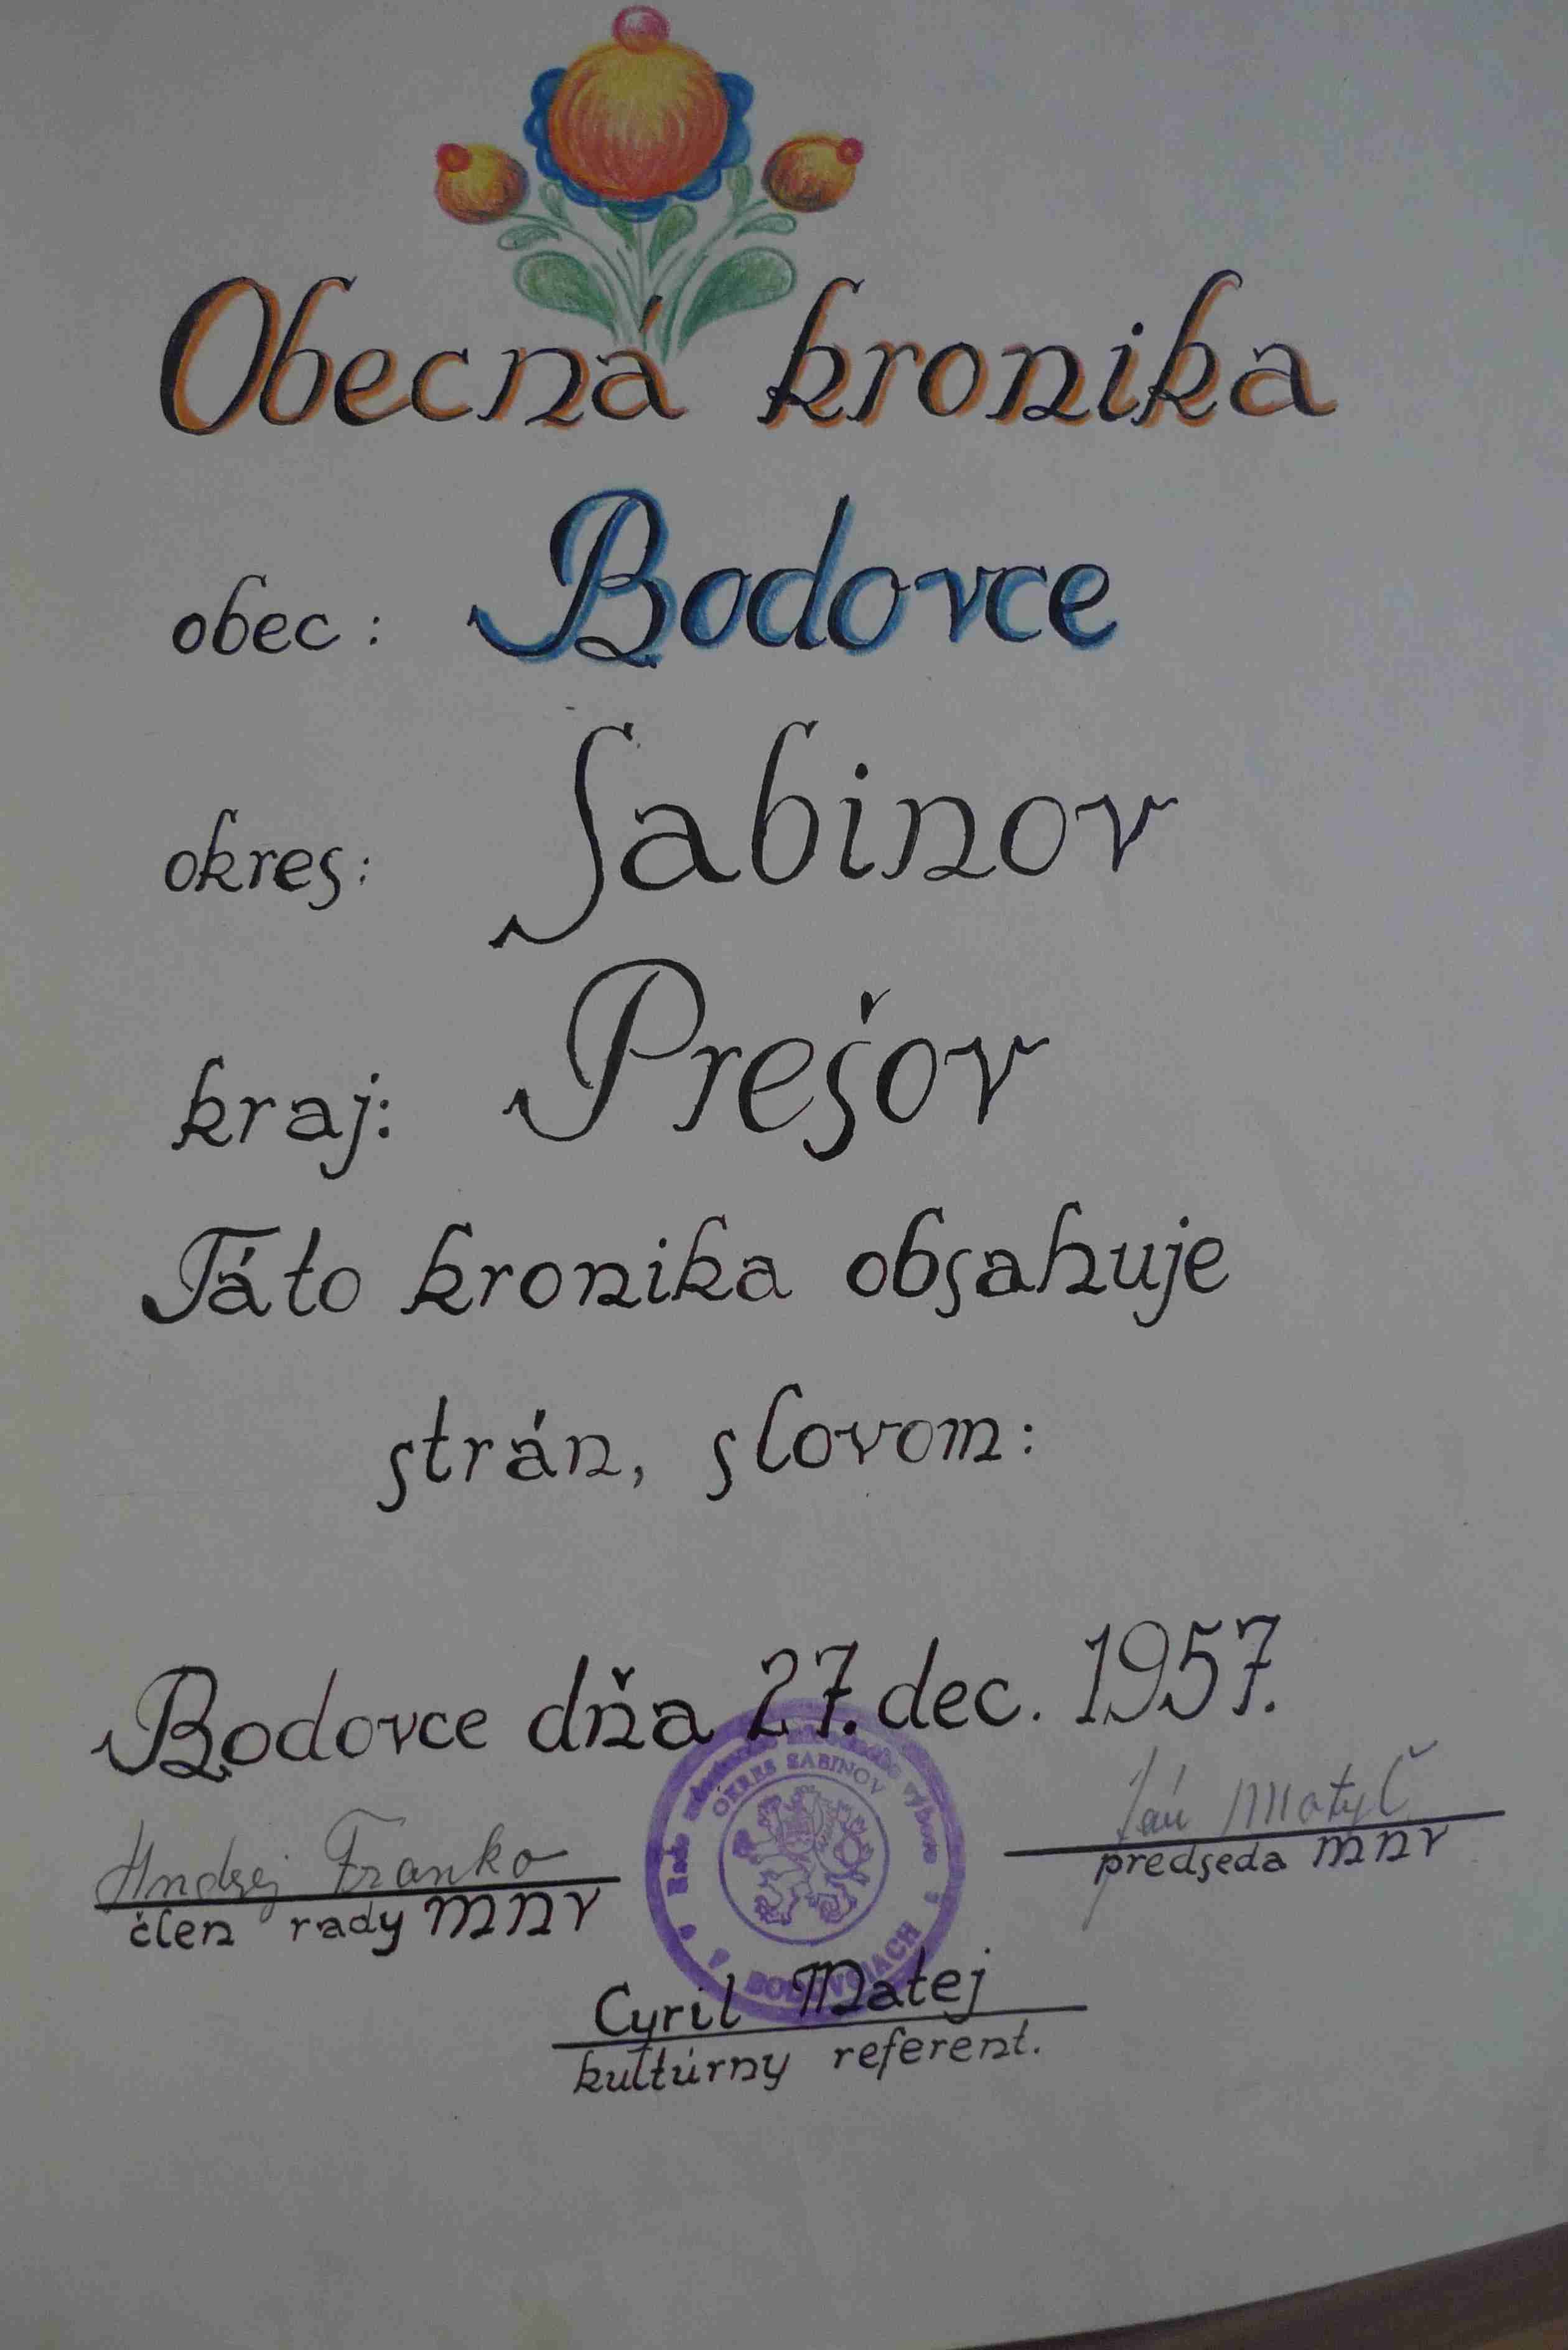 Obecná kronika
obec: Bodovce
okres: Sabinov
kraj: Prešov
Táto kronika obsahuje
strán, slovom:
Bodovce dňa 27. dec. 1957.
Rada výboru
OKRES SABINOV
Andrej Franko
člen rady MNV
Ján Matyč
predseda MNV
Cyril Matej
kultúrny referent.